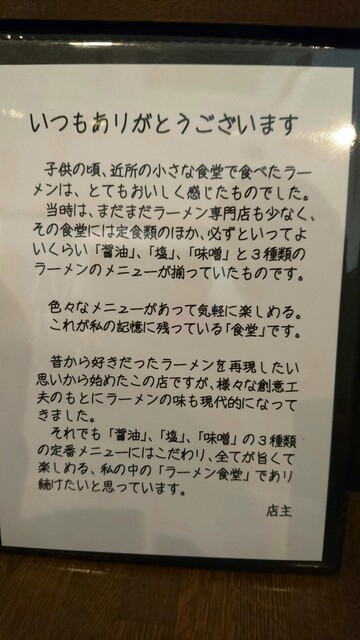 いつもありがとうございます
子供の頃、近所の小さな食堂で食べたラー
メンは、とてもおいしく感じたものでした。
当時は、まだまだラーメン専門店も少なく、
その食堂には定食類のほか、必ずといってよ
いくらい「醤油」、「塩」、「味噌」と３種類の
ラーメンのメニューが揃っていたものです。
色々なメニューがあって気軽に楽しめる。
これが私の記憶に残っている「食堂」です。
昔から好きだったラーメンを再現したい
思いから始めたこの店ですが、様々な創意工
夫のもとにラーメンの味も現代的になって
きました。
それでも「醤油」、「塩」、「味噌」の３種類
の定番メニューにはこだわり、全てが旨くて
楽しめる、私の中の「ラーメン食堂」であり
続けたいと思っています。
店主